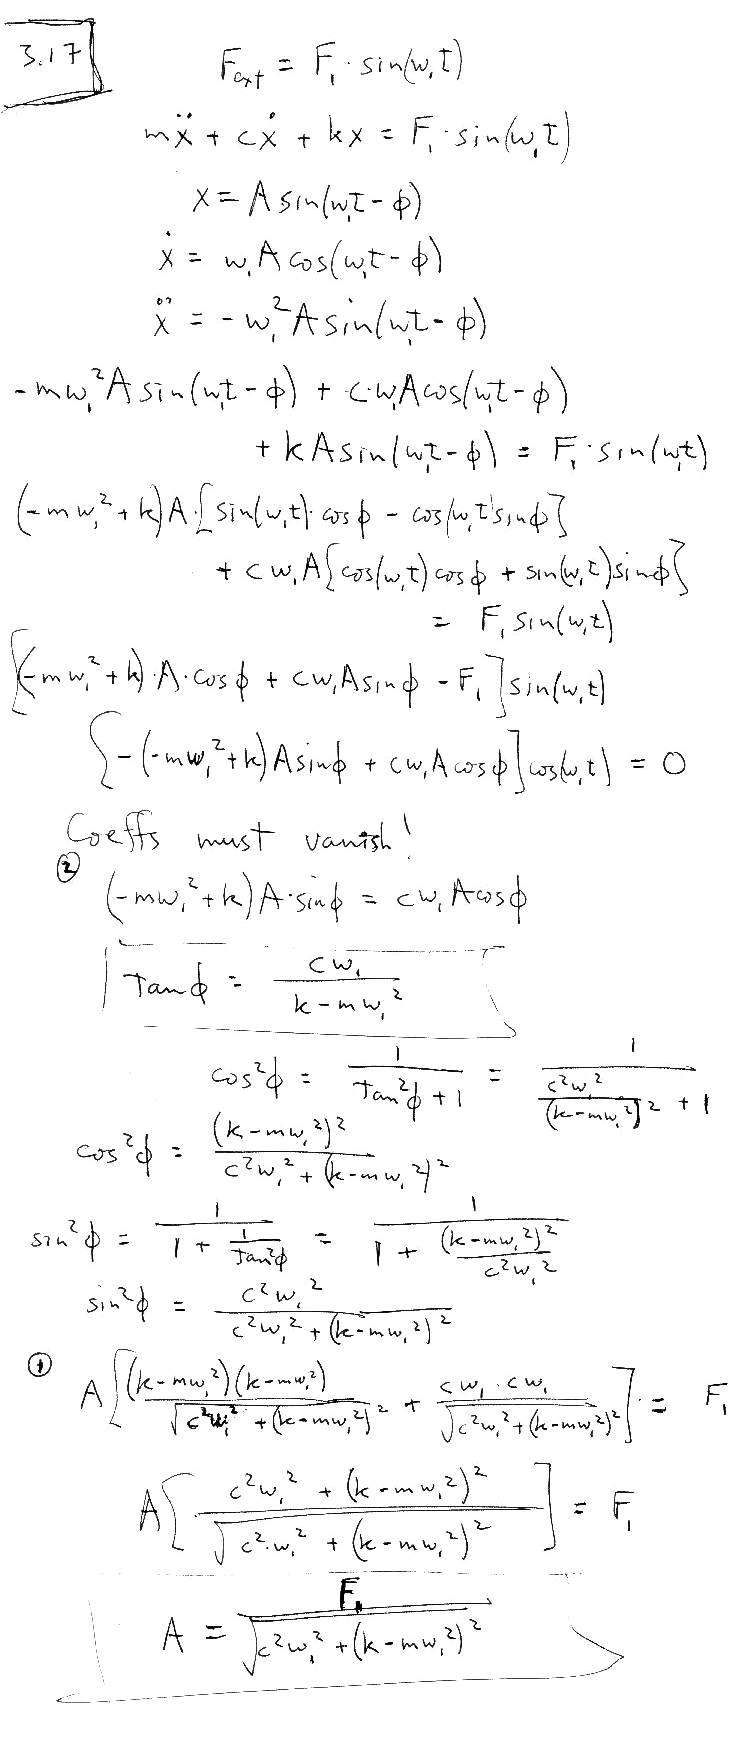 3.17
F_ext = F₁·sin(w₁t)
mẍ + cẋ + kx = F₁·sin(w₁t)
x = A sin(w₁t - ϕ)
ẋ = w₁A cos(w₁t - ϕ)
ẍ = -w₁²A sin(w₁t - ϕ)
-mw₁²A sin(w₁t - ϕ) + c·w₁A cos(w₁t - ϕ)
+ kA sin(w₁t - ϕ) = F₁·sin(w₁t)
(-mw₁² + k)A·[sin(w₁t)·cosϕ - cos(w₁t)·sinϕ]
+ cw₁A[cos(w₁t)cosϕ + sin(w₁t)sinϕ]
= F₁ sin(w₁t)
[(-mw₁² + k)·A·cosϕ + cw₁A sinϕ - F₁] sin(w₁t)
[-(-mw₁² + k)A sinϕ + cw₁A cosϕ] cos(w₁t) = 0
Coeffs must vanish!
② (-mw₁² + k)A·sinϕ = cw₁A cosϕ
Tanϕ = cw₁ / (k - mw₁²)
cos²ϕ = 1 / (Tan²ϕ + 1) = 1 / (c²w₁² / (k - mw₁²)² + 1)
cos²ϕ = (k - mw₁²)² / (c²w₁² + (k - mw₁²)²)
sin²ϕ = 1 / (1 + 1/Tan²ϕ) = 1 / (1 + (k - mw₁²)² / c²w₁²)
sin²ϕ = c²w₁² / (c²w₁² + (k - mw₁²)²)
① A[(k - mw₁²)(k - mw₁²) / √(c²w₁² + (k - mw₁²)²) + cw₁·cw₁ / √(c²w₁² + (k - mw₁²)²)] = F₁
A[(c²w₁² + (k - mw₁²)²) / √(c²·w₁² + (k - mw₁²)²)] = F₁
A = F₁ / √(c²w₁² + (k - mw₁²)²)